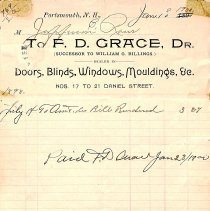 Portsmouth, N. H., Jan 1 1900
M Jefferson
To F. D. GRACE, DR.
(SUCCESSOR TO WILLIAM G. BILLINGS.)
DEALER IN
Doors, Blinds, Windows, Mouldings, &c.
NOS. 17 TO 21 DANIEL STREET.
1898.
July To Amt. as Bill Rendered 3
Paid F D Grace Jan 23 1900